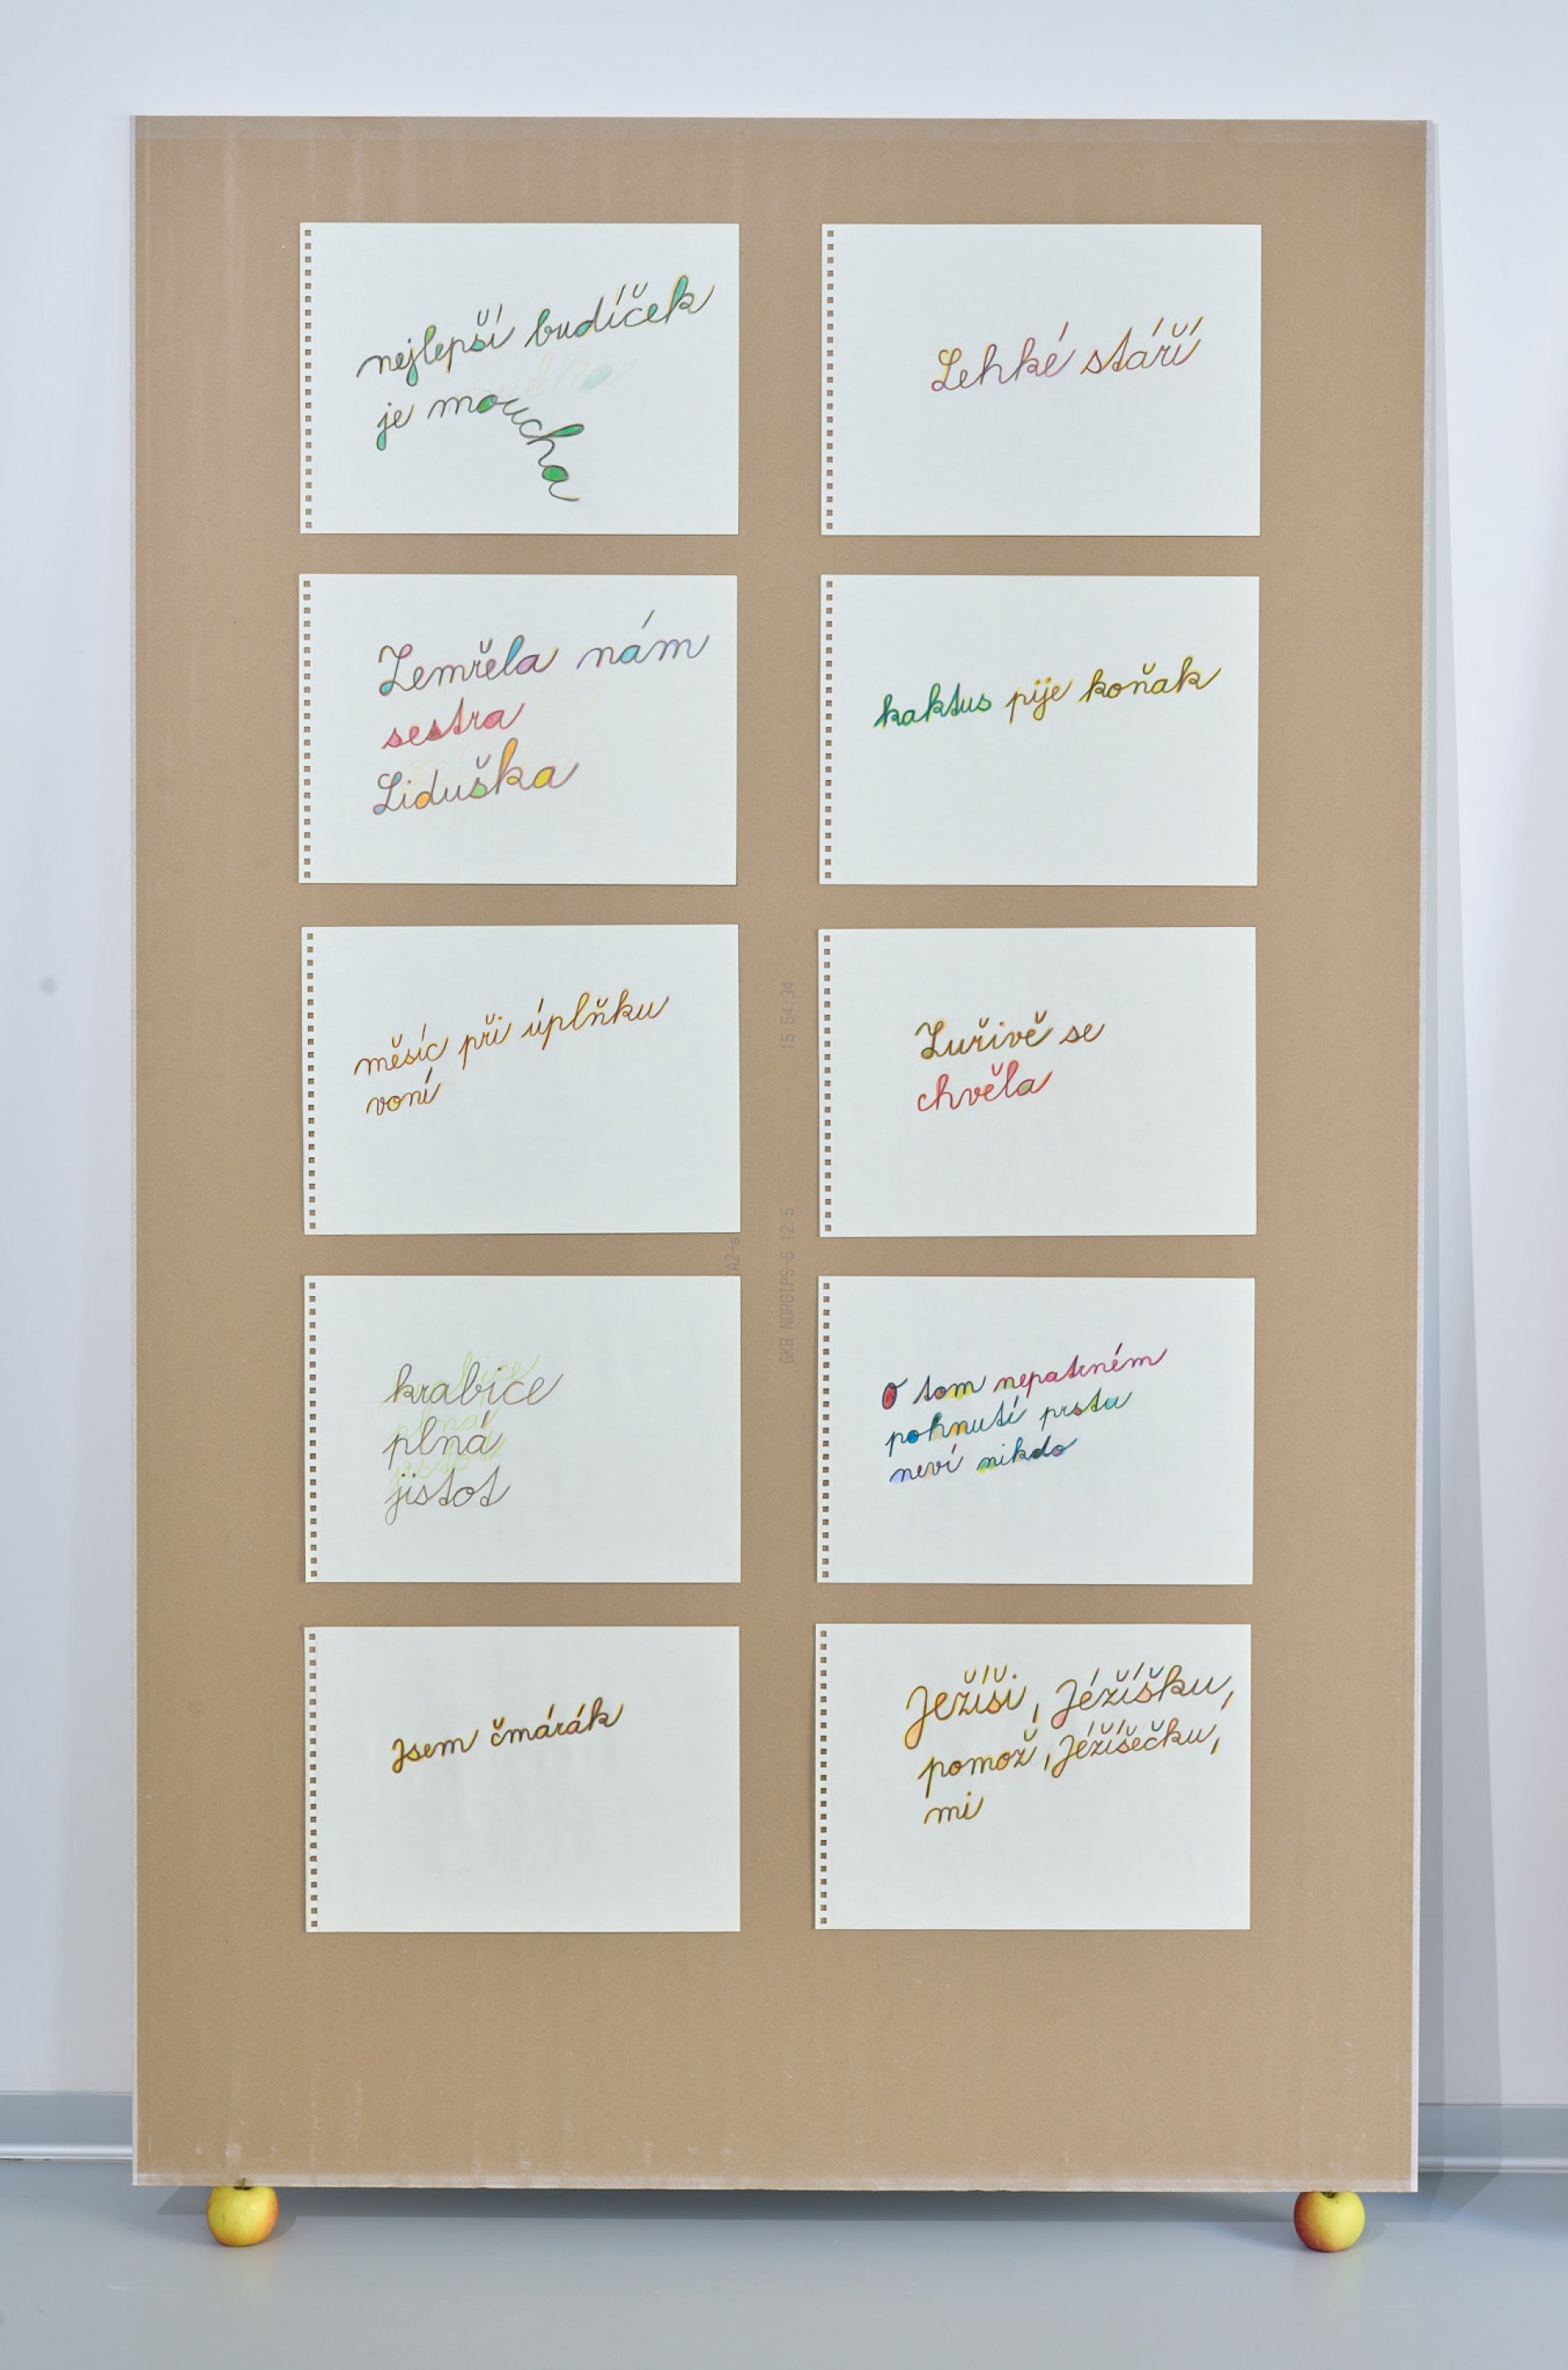 nejlepší budíček
je moucha
Lehké stáří
Zemřela nám
sestra
Liduška
kaktus pije koňak
měsíc při úplňku
voní
Zuřivě se
chvěla
krabice
plná
jistot
O tom nepatrném
pohnutí prstu
neví nikdo
Jsem čmárák
Ježíši, Jéžíšku,
pomož, Jéžíšečku,
mi
15 54 34
GKB NORGIPS-S 12.5